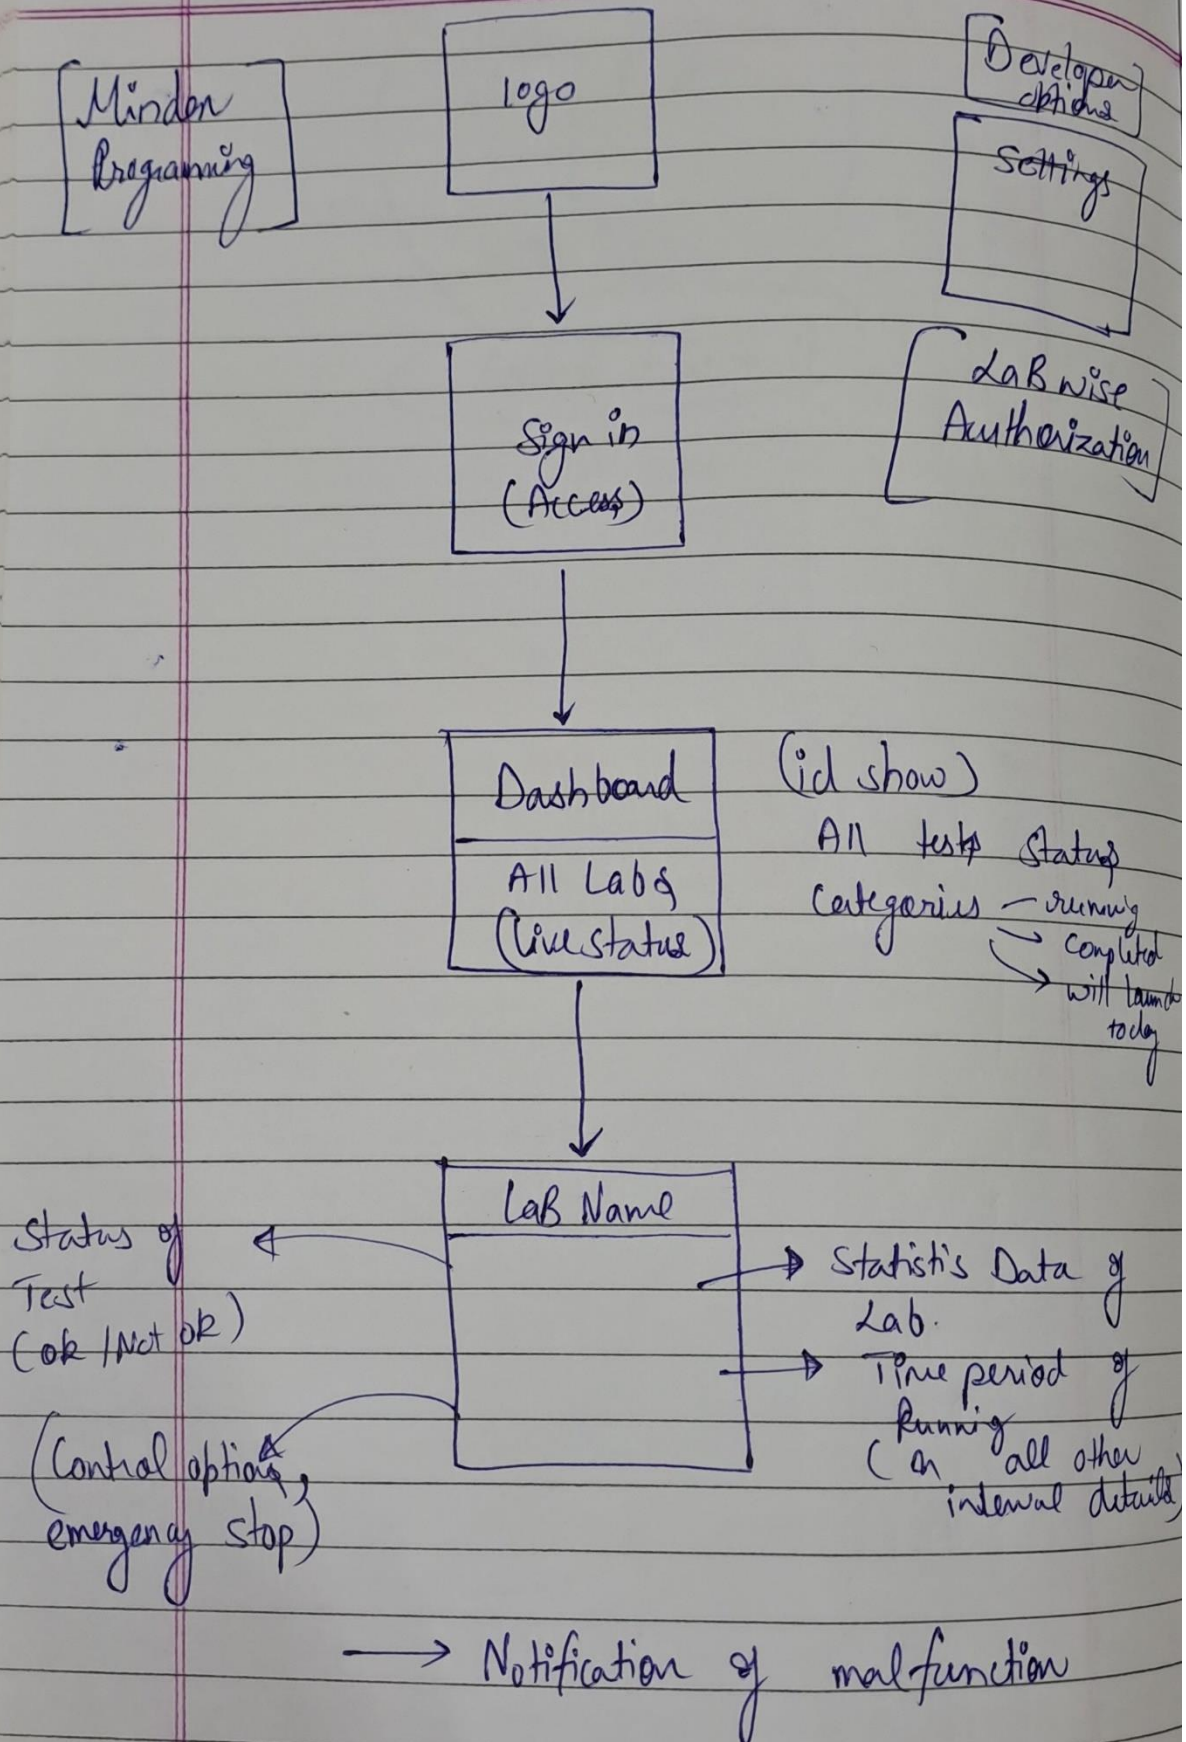 Minden
Programing
logo
Developer
options
Settings
LaB wise
Authorization
Sign in
(Access)
Dashboard
All Labs
(live status)
(id show)
All tests status
Categories – running
→ Completed
→ will launch
today
LaB Name
Status of
Test
(ok / Not ok)
(Control options,
emergency stop)
→ Statistis Data of
Lab.
→ Time period of
Runnig
( all other
internal details)
→ Notification of malfunction